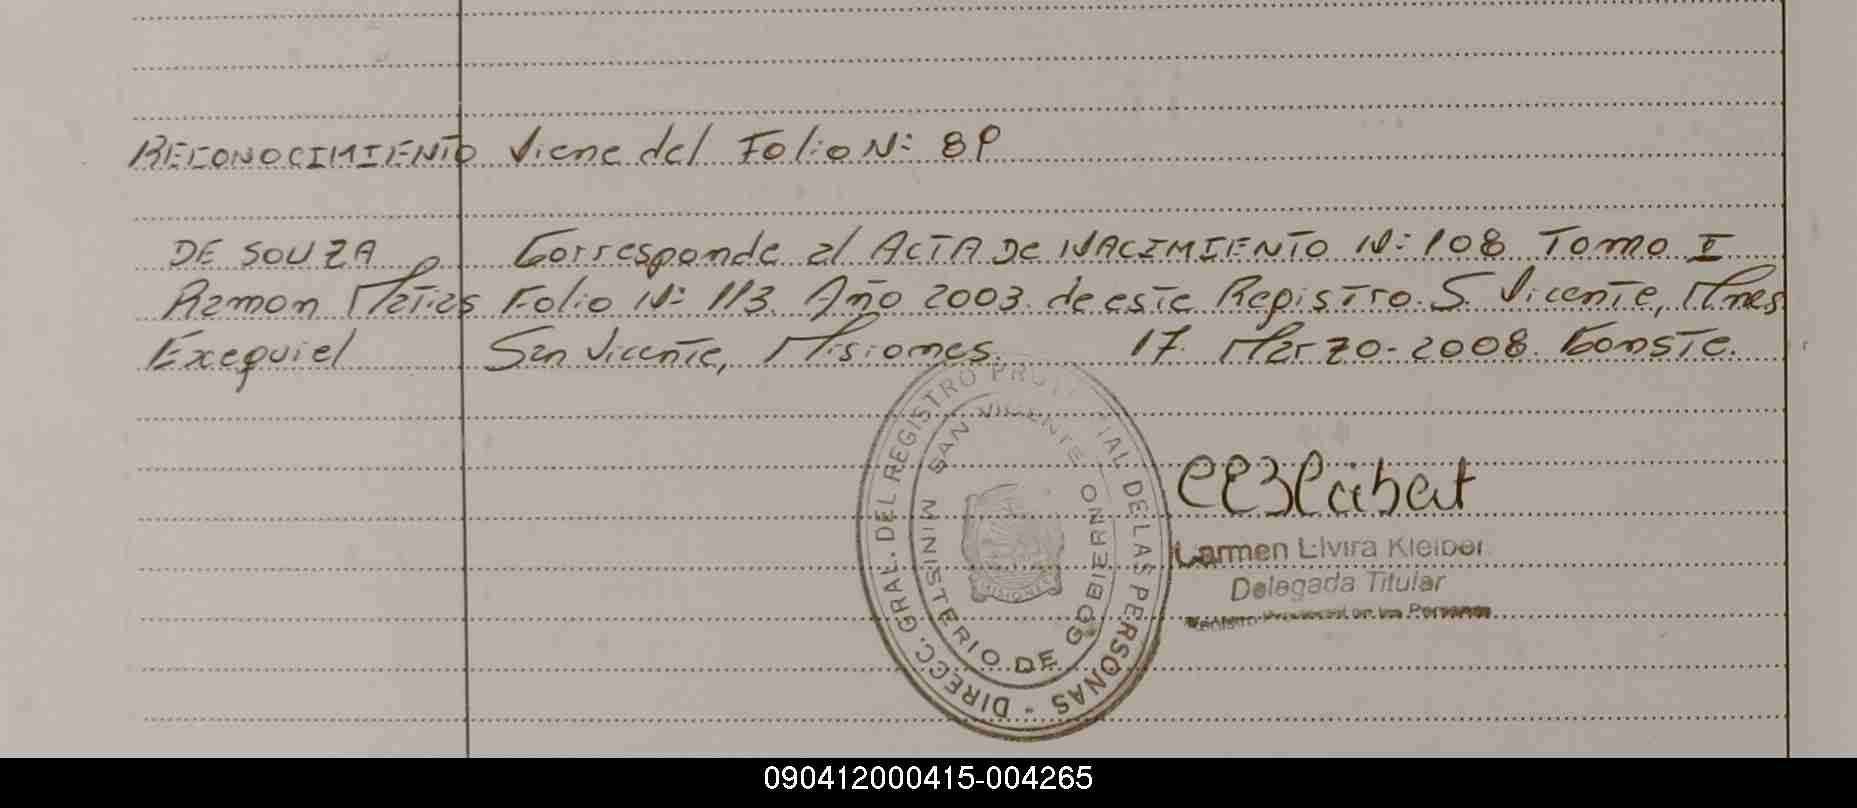 RECONOCIMIENTO Viene del Folio Nº: 89
DE SOUZA Corresponde al ACTA De NACIMIENTO Nº: 108 Tomo I
Ramon Matias Folio Nº: 113. Año 2003. de este Registro. S. Vicente, Mnes
Exequiel San Vicente, Misiones. 17. Marzo-2008. Conste.
DIRECC. GRAL. DEL REGISTRO PROVINCIAL DE LAS PERSONAS -
SAN VICENTE
MINISTERIO DE GOBIERNO
MISIONES
Carmen Elvira Kleiber
Delegada Titular
Registro Provincial de las Personas
090412000415-004265